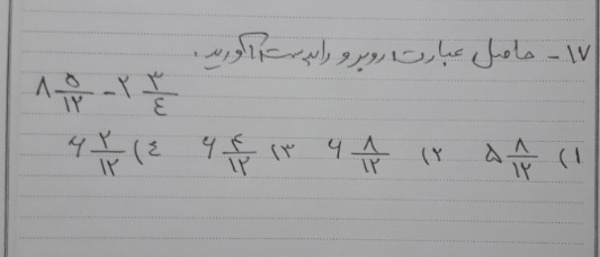 ۱۷- حاصل عبارت روبرو را بدست آورید.
۸ ۵/۱۲ - ۲ ۳/۴
۱) ۵ ۸/۱۲ ۲) ۶ ۸/۱۲ ۳) ۶ ۴/۱۲ ۴) ۶ ۲/۱۲